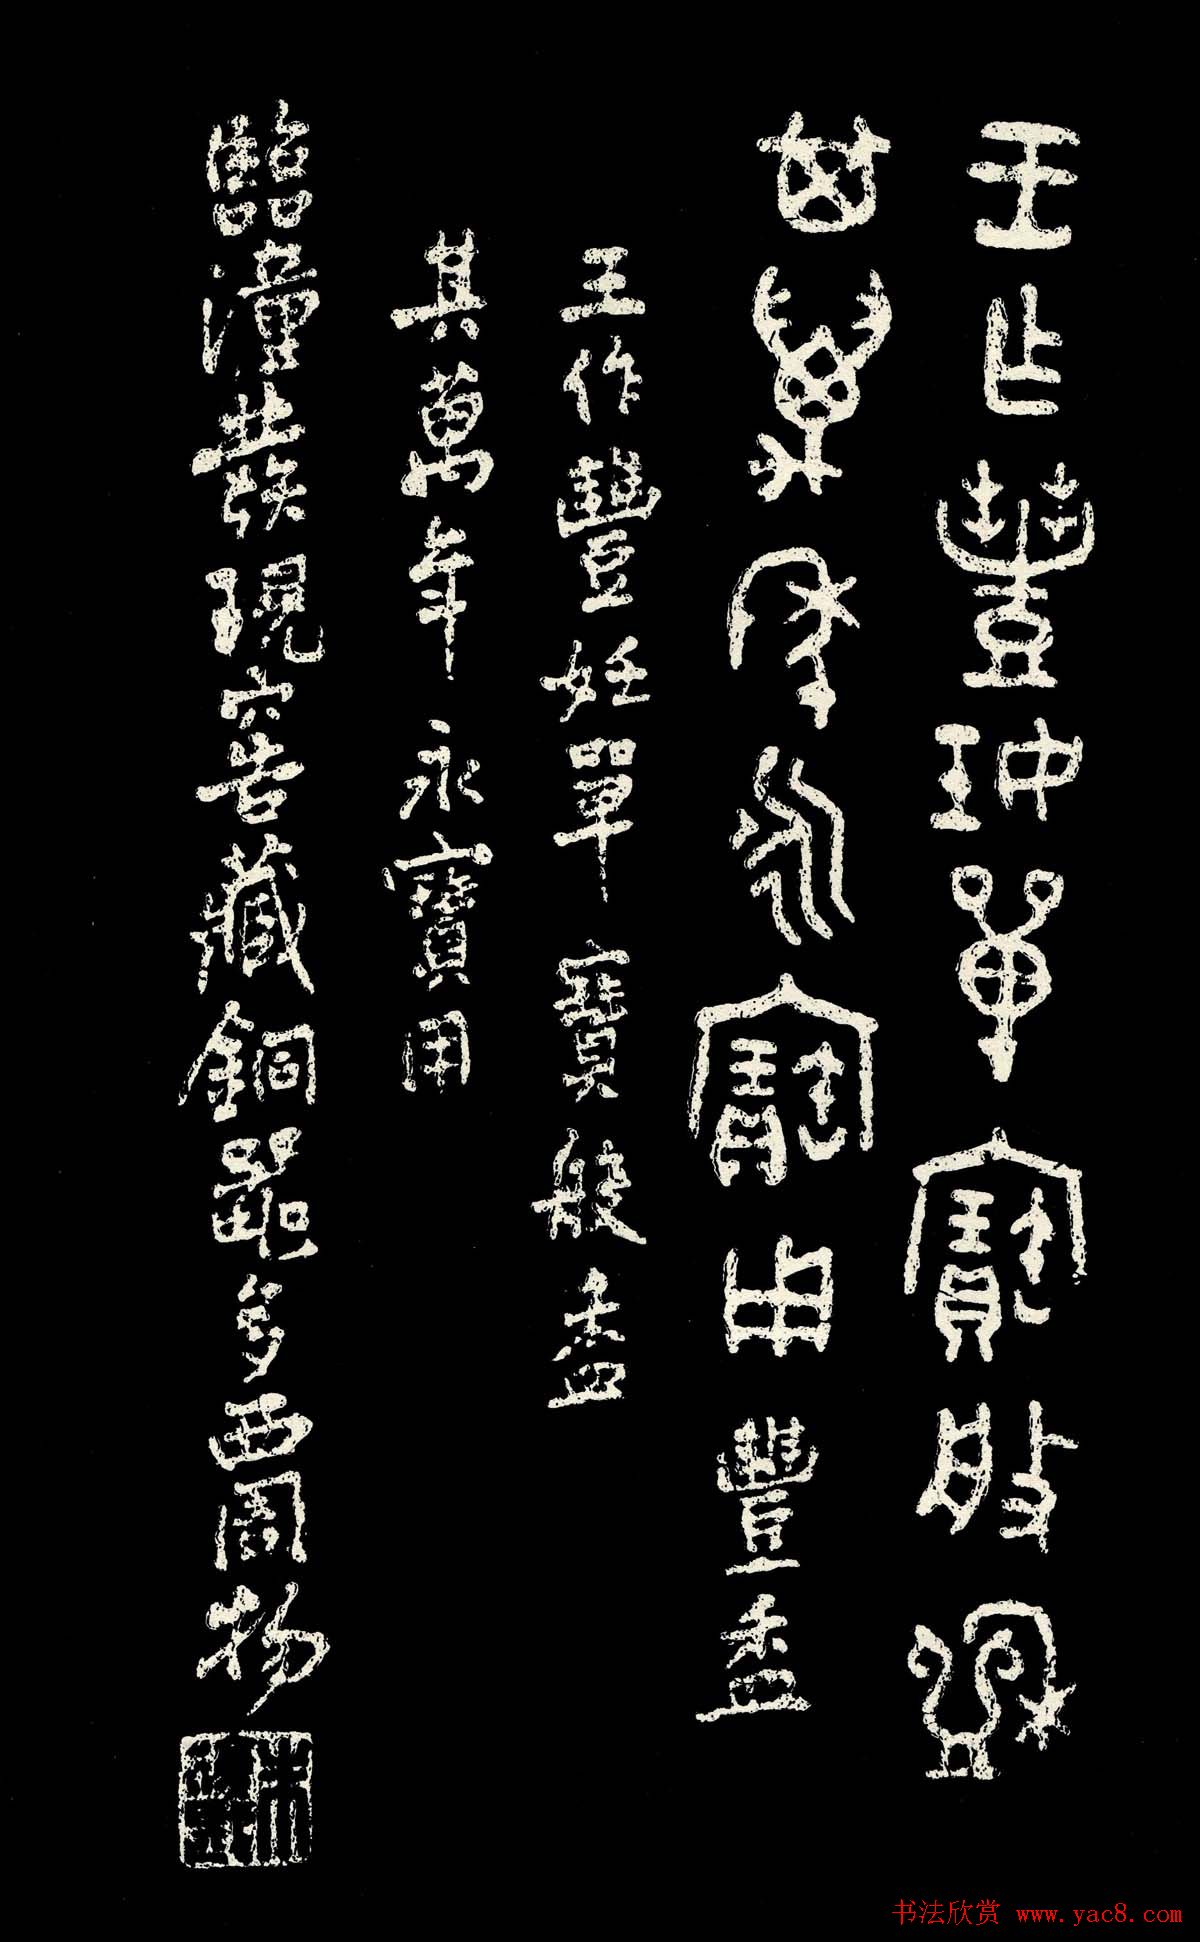 王乍豐妊單寶般盉
其萬年永寶用 豐盉
王作豐妊單寶般盉
其萬年永寶用
臨潼發現穴窖藏銅器多西周物
书法欣赏 www.yac8.com